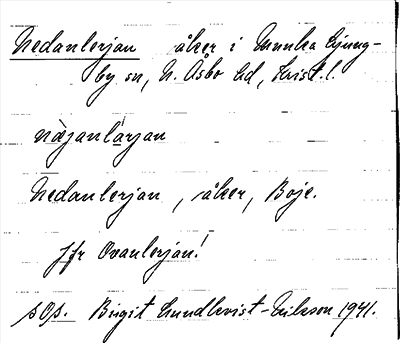 Nedanlerjan åker i Munka Ljung-
by sn, N. Åsbo hd, Krist. l.
næ̀janlarjan
Nedanlerjan, åker, Boje.
Jfr Ovanlerjan!
sOp. Birgit Lundkvist-Eriksson 1941.